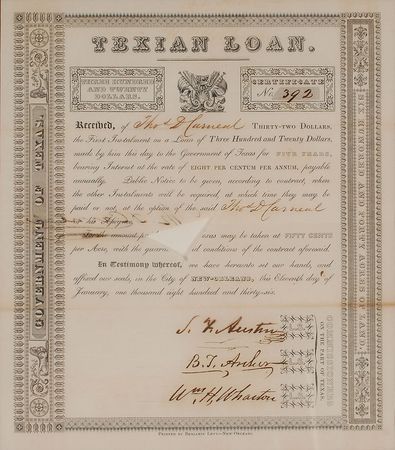 TEXIAN LOAN.
THREE HUNDRED
AND TWENTY
DOLLARS.
CERTIFICATE
No. 392
Received, of Thos D Carneal THIRTY-TWO DOLLARS,
the First Instalment on a Loan of Three Hundred and Twenty Dollars,
made by him this day to the Government of Texas for FIVE YEARS,
bearing Interest at the rate of EIGHT PER CENTUM PER ANNUM, payable
annually. Public Notice to be given, according to contract, when
the other Instalments will be required, at which time they may be
paid or not, at the option of the said Thos D Carneal
or his Assigns.
For the amount pa
exas may be taken at FIFTY CENTS
per Acre, with the guaran
conditions of the contract aforesaid.
In Testimony whereof, we have hereunto set our hands, and
affixed our seals, in the City of NEW-ORLEANS, this Eleventh day of
January, one thousand eight hundred and thirty-six.
S. F. Austin
B. T. Archer
Wm H. Wharton
COMMISSIONERS
ON THE PART
OF TEXAS.
GOVERNMENT OF TEXAS
SIX HUNDRED AND FORTY ACRES OF LAND.
PRINTED BY BENJAMIN LEVY—NEW ORLEANS.